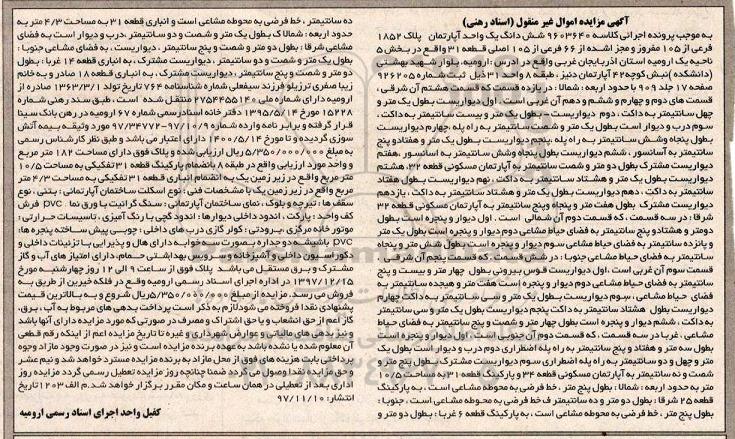 آگهی مزایده اموال غیر منقول (اسناد رهنی)
به موجب پرونده اجرائی کلاسه ۹۶۰۳۶۴۰ شش دانگ یک واحد آپارتمان پلاک ۱۸۵۲
فرعی از ۱۰۵ مفروز و مجزا شده از ۶۶ فرعی از ۱۰۵ اصلی قطعه ۳۱ واقع در بخش ۵
ناحیه یک ارومیه استان آذربایجان غربی واقع در آدرس : ارومیه بلوار شهید بهشتی
(دانشکده) نبش کوچه ۴۲ آپارتمان دنیز ، طبقه ۸ واحد ۳۱ ذیل ثبت شماره ۹۲۶۲۰۵
صفحه ۱۷ جلد ۹۰۹ با حدود اربعه : شمالا : در یازده قسمت که قسمت هشتم آن شرقی ،
قسمت های دوم و چهارم و ششم و دهم آن غربی است . اول دیواریست بطول یک متر و
چهل سانتیمتر به داکت ، دوم دیواریست بطول یک متر و بیست سانتیمتر به داکت ،
سوم درب و دیوار است بطول یک متر و شصت سانتیمتر به راه پله ، چهارم دیواریست
بطول پنجاه وشش سانتیمتر به راه پله ، پنجم دیواریست بطول یک متر و هفتادو پنج
سانتیمتر به آسانسور ، ششم دیواریست بطول پنجاه وشش سانتیمتر به آسانسور ،هفتم
دیواریست مشترک بطول دو متر و شصت سانتیمتر به آپارتمان مسکونی قطعه ۳۲، هشتم
دیواریست بطول یک متر و هشتاد سانتیمتر به داکت ، نهم دیواریست بطول هفتاد
سانتیمتر به داکت ، دهم دیواریست بطول یک متر و هشتاد سانتیمتر به داکت ، یازدهم
دیواریست مشترک بطول هفت متر و پنجاه و پنج سانتیمتر به آپارتمان مسکونی قطعه ۳۲
شرقا : در سه قسمت ، که قسمت دوم آن شمالی است . اول دیوار و پنجره است بطول
دومتر و هشتادو پنج سانتیمتر به فضای حیاط مشاعی دوم دیوار و پنجره است بطول یک متر
و پانزده سانتیمتر به فضای حیاط مشاعی سوم دیوار و پنجره است بطول شش متر و پنجاه
سانتیمتر به فضای حیاط مشاعی جنوبا : در شش قسمت ، که قسمت پنجم آن شرقی ،
قسمت سوم آن غربی است ،اول دیواریست قوس بیرونی بطول چهار متر و بیست و پنج
سانتیمتر به فضای حیاط مشاعی دوم دیوار و پنجره است هفت متر و هیجده سانتیمتر به
فضای حیاط مشاعی ، سوم دیواریست بطول یک متر و سی سانتیمتر به داکت چهارم
دیواریست بطول هشتاد سانتیمتر به داکت پنجم دیواریست بطول یک متر و سی سانتیمتر
به داکت ، ششم دیوار و پنجره است بطول چهار متر و شصت و پنج سانتیمتر به فضای حیاط
مشاعی ، غربا : در سه قسمت ، که قسمت دوم آن جنوبی است . اول دیوار و پنجره است
بطول سه متر و هفتاد و پنج سانتیمتر به راه پله اضطراری دوم درب و دیوار است بطول یک
متر و چهل و دو سانتیمتر به راه پله اضطراری سوم دیواریست مشترک بطول دوازده متر و
شصت و نه سانتیمتر به آپارتمان مسکونی قطعه ۳۴ و پارکینگ قطعه ۳۱ به مساحت ۱۰/۵
متر به حدود اربعه : شمالا : بطول پنج متر ، خط فرضی به محوطه مشاعی است . به پارکینگ
قطعه ۲۵ شرقا : بطول دو متر و ده سانتیمتر ، خط فرضی به محوطه مشاعی است ، جنوبا :
بطول پنج متر ، خط فرضی به محوطه مشاعی است ، به پارکینگ قطعه ۶ غربا : بطول دو متر و
ده سانتیمتر ، خط فرضی به محوطه مشاعی است و انباری قطعه ۳۱ به مساحت ۴/۳ متر به
حدود اربعه : شمالا ک بطول یک متر و شصت و دو سانتیمتر ،درب و دیوار است به فضای
مشاعی شرقا : بطول دو متر و شصت و پنج سانتیمتر ، دیواریست ، به فضای مشاعی جنوبا :
بطول یک متر و شصت و دو سانتیمتر ، دیواریست مشترک ، به انباری قطعه ۱۴ غربا : بطول
دو متر و شصت و پنج سانتیمتر ، دیواریست مشترک ، به انباری قطعه ۱۸ صادر و به خانم
زیبا صفری ترزیلو فرزند سیفعلی شماره شناسنامه ۷۶۴ تاریخ تولد ۱۳۶۳/۳/۱ صادره از
ارومیه دارای شماره ملی ۲۷۵۴۴۵۵۱۴۰ منتقل شده است ، طبق سند رهنی شماره
۱۵۲۲۸ مورخ ۱۳۹۵/۵/۱۴ دفتر خانه اسنادرسمی شماره ۶۷ ارومیه در رهن بانک سینا
قرار گرفته و برابر نامه وارده شماره ۹۷/۳۴۷۷۲-۹۷/۱۰/۹ مورد وثیقه بیمه آتش
سوزی گردیده و تا مورخ ۱۴۰۰/۵/۱۲ دارای اعتبار می باشد و طبق نظر کارشناس رسمی
به مبلغ ۵/۳۵۰/۰۰۰/۰۰۰ریال ارزیابی شده و پلاک فوق دارای مساحت ۱۸۲ متر مربع
و واحد مورد ارزیابی واقع در طبقه ۸ بانضمام پارکینگ قطعه ۳۱ تفکیکی به مساحت ۱۰/۵
متر مربع واقع در زیر زمین یک به انضمام انباری قطعه ۳۱ تفکیکی به مساحت ۴/۳ متر
مربع واقع در زیر زمین یک با مشخصات فنی : نوع اسکلت ساختمان آپارتمانی : بتنی ، نوع
سقف ها : تیرچه و بلوک ، نمای ساختمان آپارتمانی : سنگ گرانیت با ورق نما pvc فرش
کف واحد : پارکت ، اندود داخلی دیوارها : اندود گچی با رنگ آمیزی ، تاسیسات حرارتی :
موتور خانه مرکزی ،برودتی : کولر گازی درب های داخلی : چوبی پیش ساخته پنجره ها:
pvc باشیشه دو جداره بصورت سه خوابه دارای هال و پذیرایی با تزئینات داخلی و
دکوراسیون داخلی و آشپزخانه و سرویس بهداشتی ـ حمام ، دارای امتیاز های آب و گاز
مشترک و برق مستقل می باشد پلاک فوق از ساعت ۹ الی ۱۲ روز چهارشنبه مورخ
۱۳۹۷/۱۲/۱۵ در اداره اجرای اسناد رسمی ارومیه واقع در فلکه خیرین از طریق به
فروش می رسد. مزایده از مبلغ ۵/۳۵۰/۰۰۰/۰۰۰ریال شروع و به بالاترین قیمت
پیشنهادی نقدا فروخته می شود لازم به ذکر است پرداخت بدهی های مربوط به آب ، برق،
گاز اعم از حق انشعاب و یا حق اشتراک و مصرف در صورتی که مورد مزایده دارای آنها باشد
و نیز بدهی های مالیاتی و عوارض شهرداری و غیره تا تاریخ مزایده اعم از اینکه رقم قطعی
آن معلوم شده یا نشده باشد به عهده برنده مزایده است و نیز در صورت وجود مازاد وجوه
پرداختی بابت هزینه های فوق از محل مازاد به برنده مزایده مسترد خواهد شد و نیم عشر
و حق مزایده نقدا وصول می گردد ضمنا چنانچه روز مزایده تعطیل رسمی گردد مزایده روز
اداری بعد از تعطیلی در همان ساعت و مکان مقرر برگزار خواهد شد. م الف ۱۲۰۳ تاریخ
انتشار: ۹۷/۱۱/۱۰
کفیل واحد اجرای اسناد رسمی ارومیه